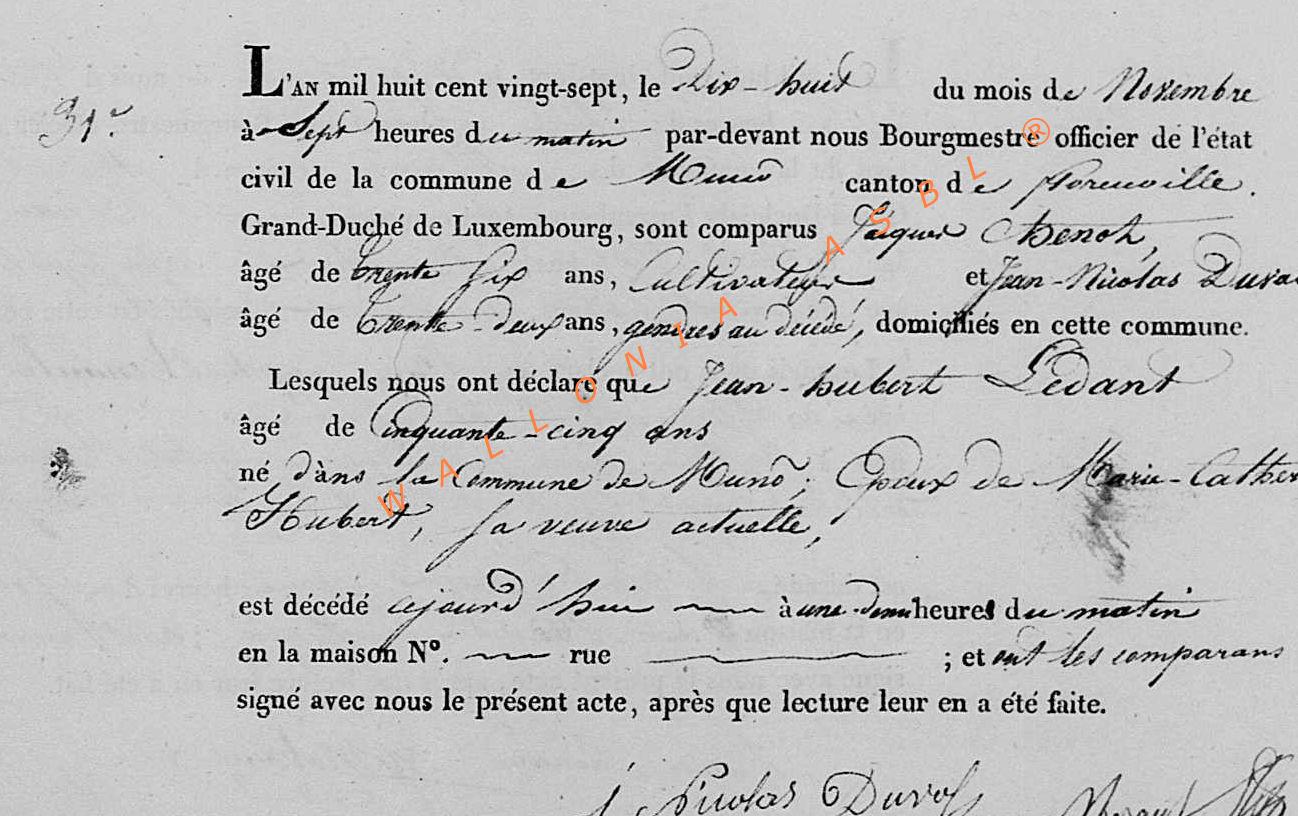 L'AN mil huit cent vingt-sept, le Dix-huit du mois de Novembre
31e.
à Sept heures du matin par-devant nous Bourgmestre officier de l'état
civil de la commune de Muno canton de florenville.
Grand-Duché de Luxembourg, sont comparus Jacques Chenot,
âgé de trente six ans, Cultivateur et Jean-Nicolas Duva
âgé de trente-deux ans, gendres au décédé, domiciliés en cette commune.
Lesquels nous ont déclaré que Jean-hubert Ledant
âgé de Cinquante-cinq ans
né dans la Commune de Muno; Epoux de Marie-Cather
Hubert, sa veuve actuelle,
est décédé aujourd'hui à une demi heures du matin
en la maison N°. rue ; et ont les comparans
signé avec nous le présent acte, après que lecture leur en a été faite.
j Nicolas Duval
WALLONIA ASBL ®